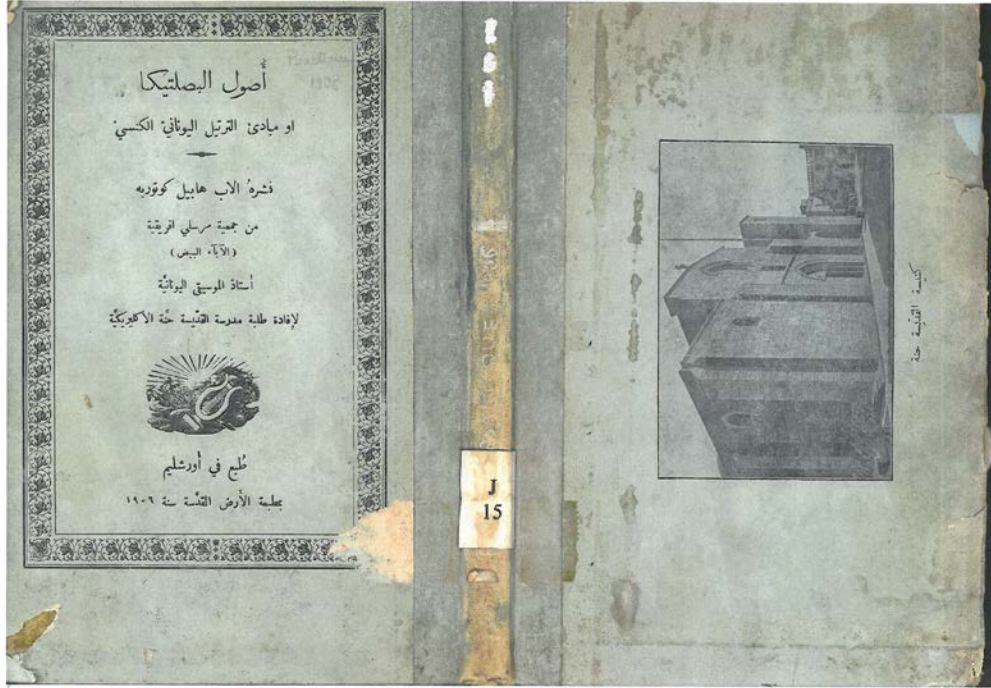 أصول البصلتيكا
او مبادئ الترتيل اليوناني الكنسي
نشرهُ الاب هابيل كوتوريه
من جمعية مرسلي افريقية
(الآباء البيض)
أستاذ الموسيقى اليونانيَّة
لإفادة طلبة مدرسة القدّيسة حنَّة الأكليريكيَّة
طُبع في أورشليم
بمطبعة الأرض المقدَّسة سنة ١٩٠٦
J
15
كنيسة القدّيسة حنة